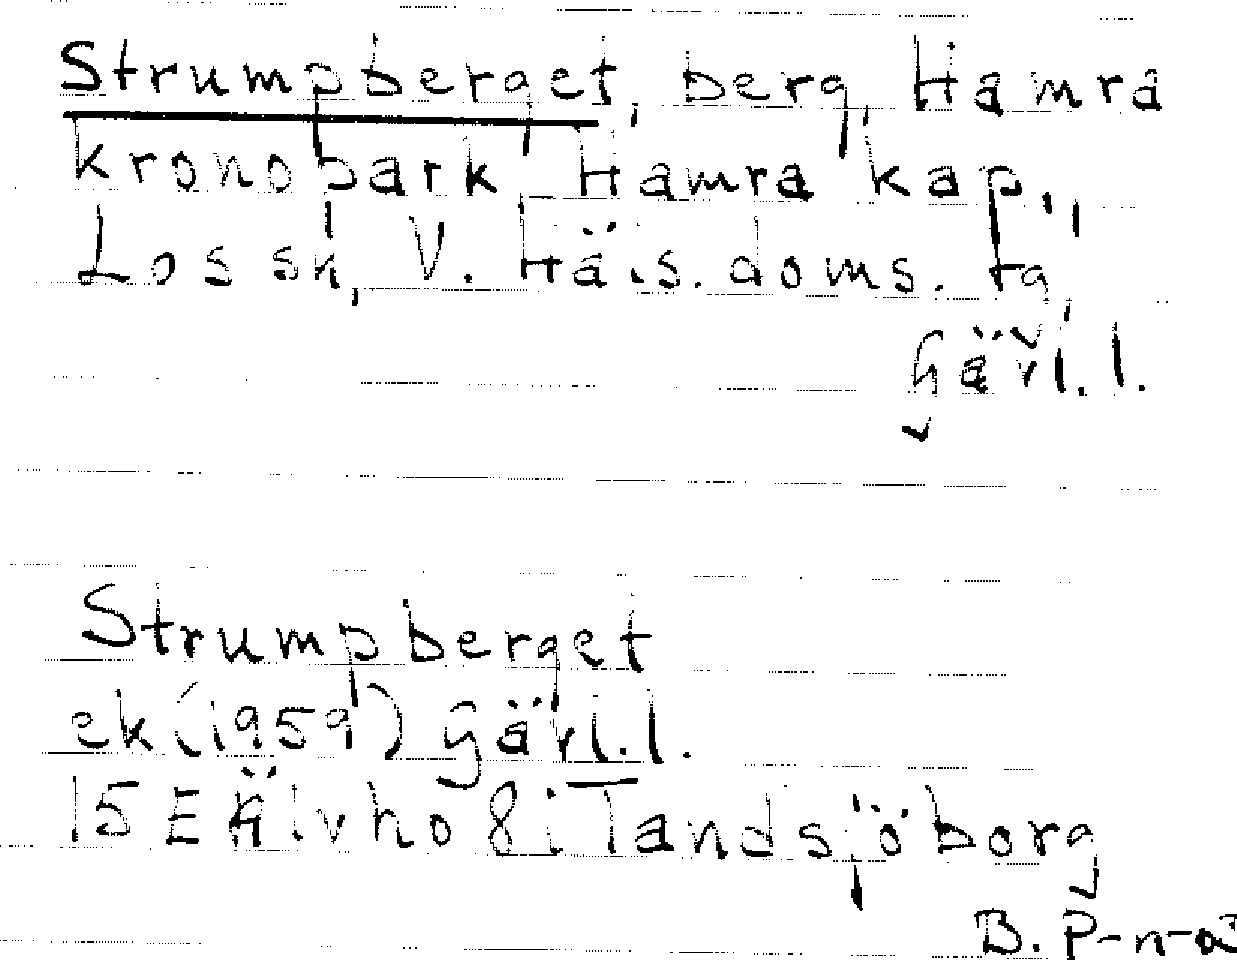 Strumpberget, berg, Hamra
kronopark, Hamra kap.,
Los sn, V. Häls. doms. tg,
Gävl. l.
Strumpberget
ek (1959) Gävl. l.
15 E Älvho 8 i Tandsjöborg
B. P-n-a